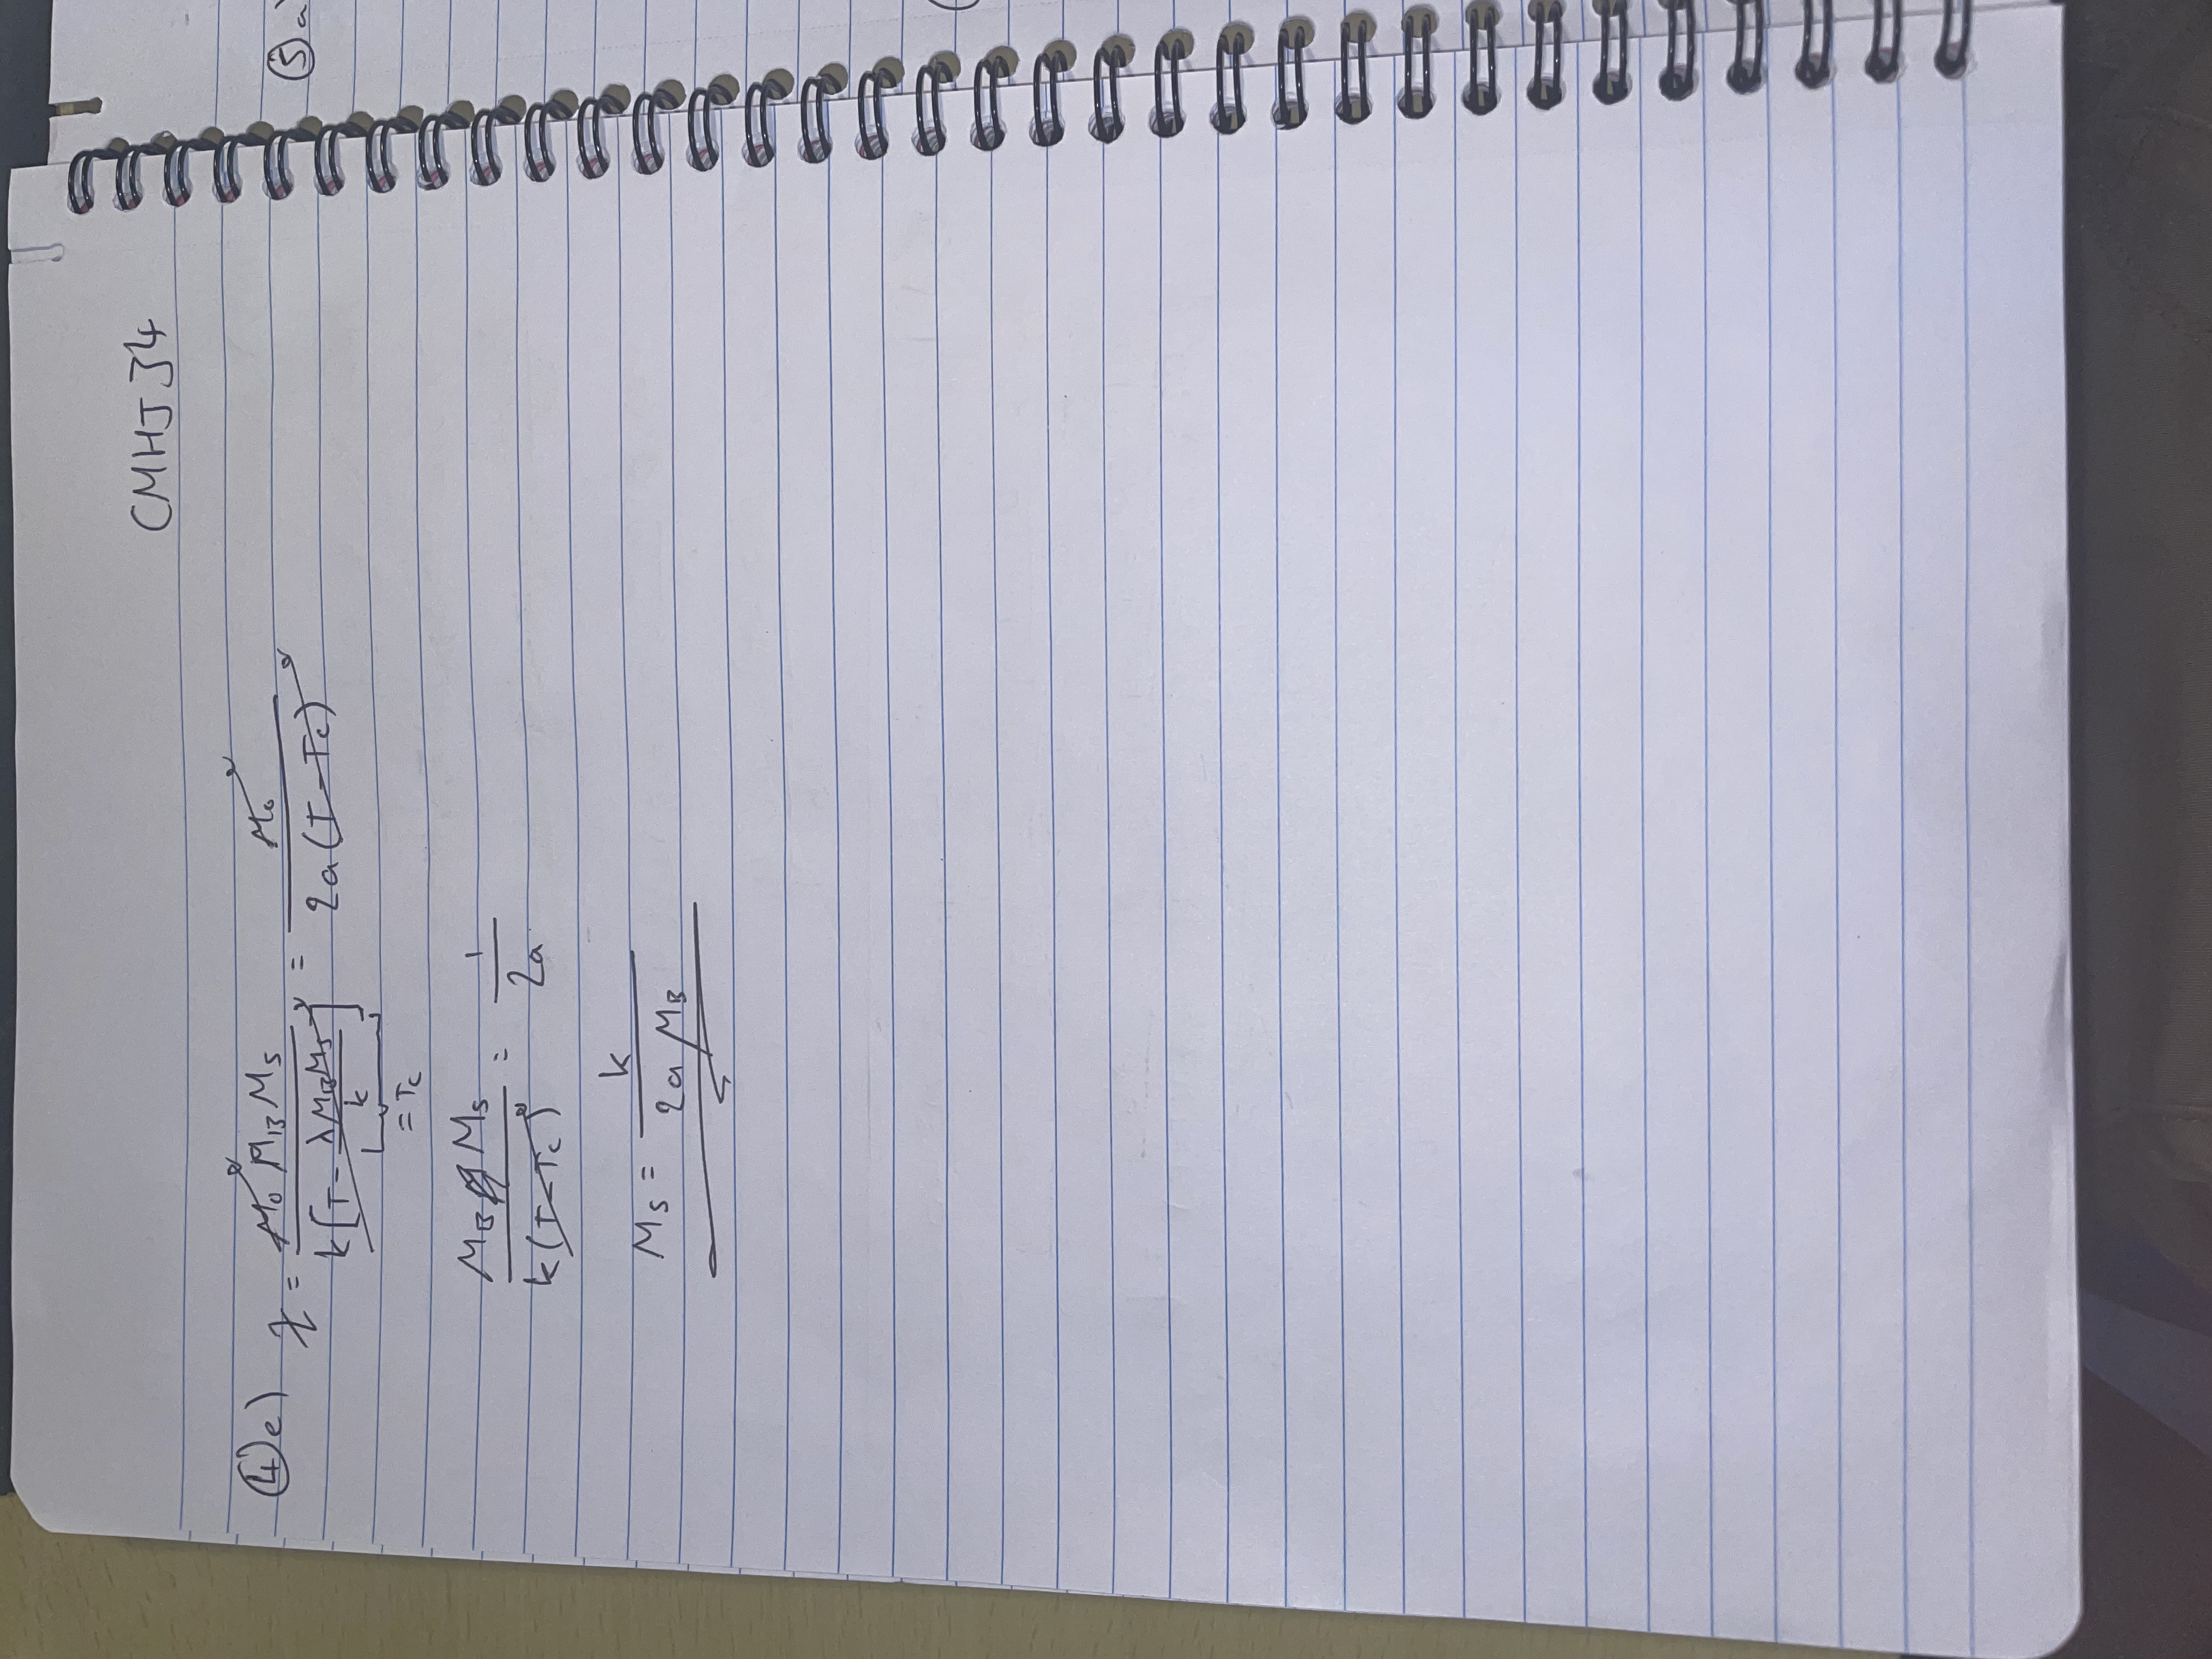 CMHJ34
④e) χ = μ₀ μ_B M_s / k[T - λμ_B M_s / k] = μ₀ / 2a(T - T_c)
= T_c
μ_B M_s / k(T - T_c) = 1 / 2a
M_s = k / 2a μ_B
⑤a